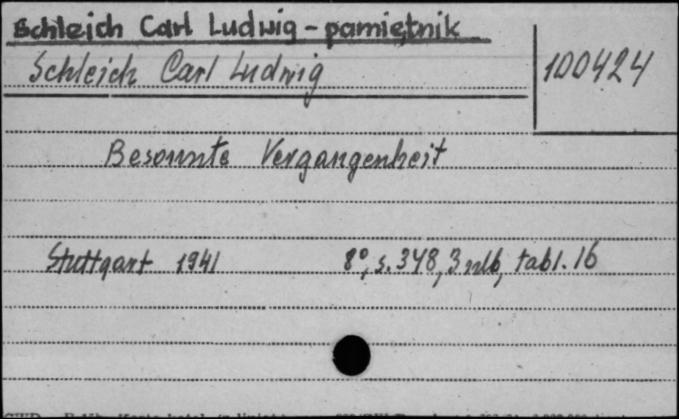 Schleich Carl Ludwig - pamiętnik
Schleich Carl Ludwig
100424
Besonnte Vergangenheit
Stuttgart 1941
8°, s. 348, 3 nlb, tabl. 16